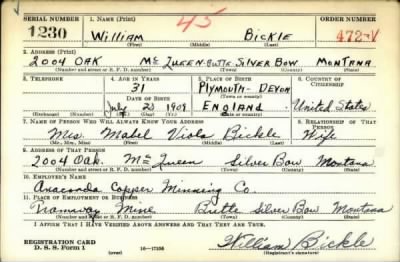 SERIAL NUMBER 1. NAME (Print) 45 ORDER NUMBER
1230 William Bickle 472-V
(First) (Middle) (Last)
2. ADDRESS (Print)
2004 OAK Mc QUEEN-BUTTE SILVER BOW MONTANA
(Number and street or R. F. D. number) (Town) (County) (State)
3. TELEPHONE 4. AGE IN YEARS 5. PLACE OF BIRTH 6. COUNTRY OF CITIZENSHIP
31 PLYMOUTH-DEVON
DATE OF BIRTH (Town or county)
July 23 1909 ENGLAND United States
(Exchange) (Number) (Mo.) (Day) (Yr.) (State or country)
7. NAME OF PERSON WHO WILL ALWAYS KNOW YOUR ADDRESS 8. RELATIONSHIP OF THAT PERSON
Mrs Mabel Viola Bickle Wife
(Mr., Mrs., Miss) (First) (Middle) (Last)
9. ADDRESS OF THAT PERSON
2004 Oak. Mc Queen Silver Bow Montana
(Number and street or R. F. D. number) (Town) (County) (State)
10. EMPLOYER'S NAME
Anaconda Copper Minning Co.
11. PLACE OF EMPLOYMENT OR BUSINESS
Tramway Mine Butte Silver Bow Montana
(Number and street or R. F. D. number) (Town) (County) (State)
I AFFIRM THAT I HAVE VERIFIED ABOVE ANSWERS AND THAT THEY ARE TRUE.
REGISTRATION CARD
D. S. S. Form 1 16-17105 William Bickle
(Registrant's signature)